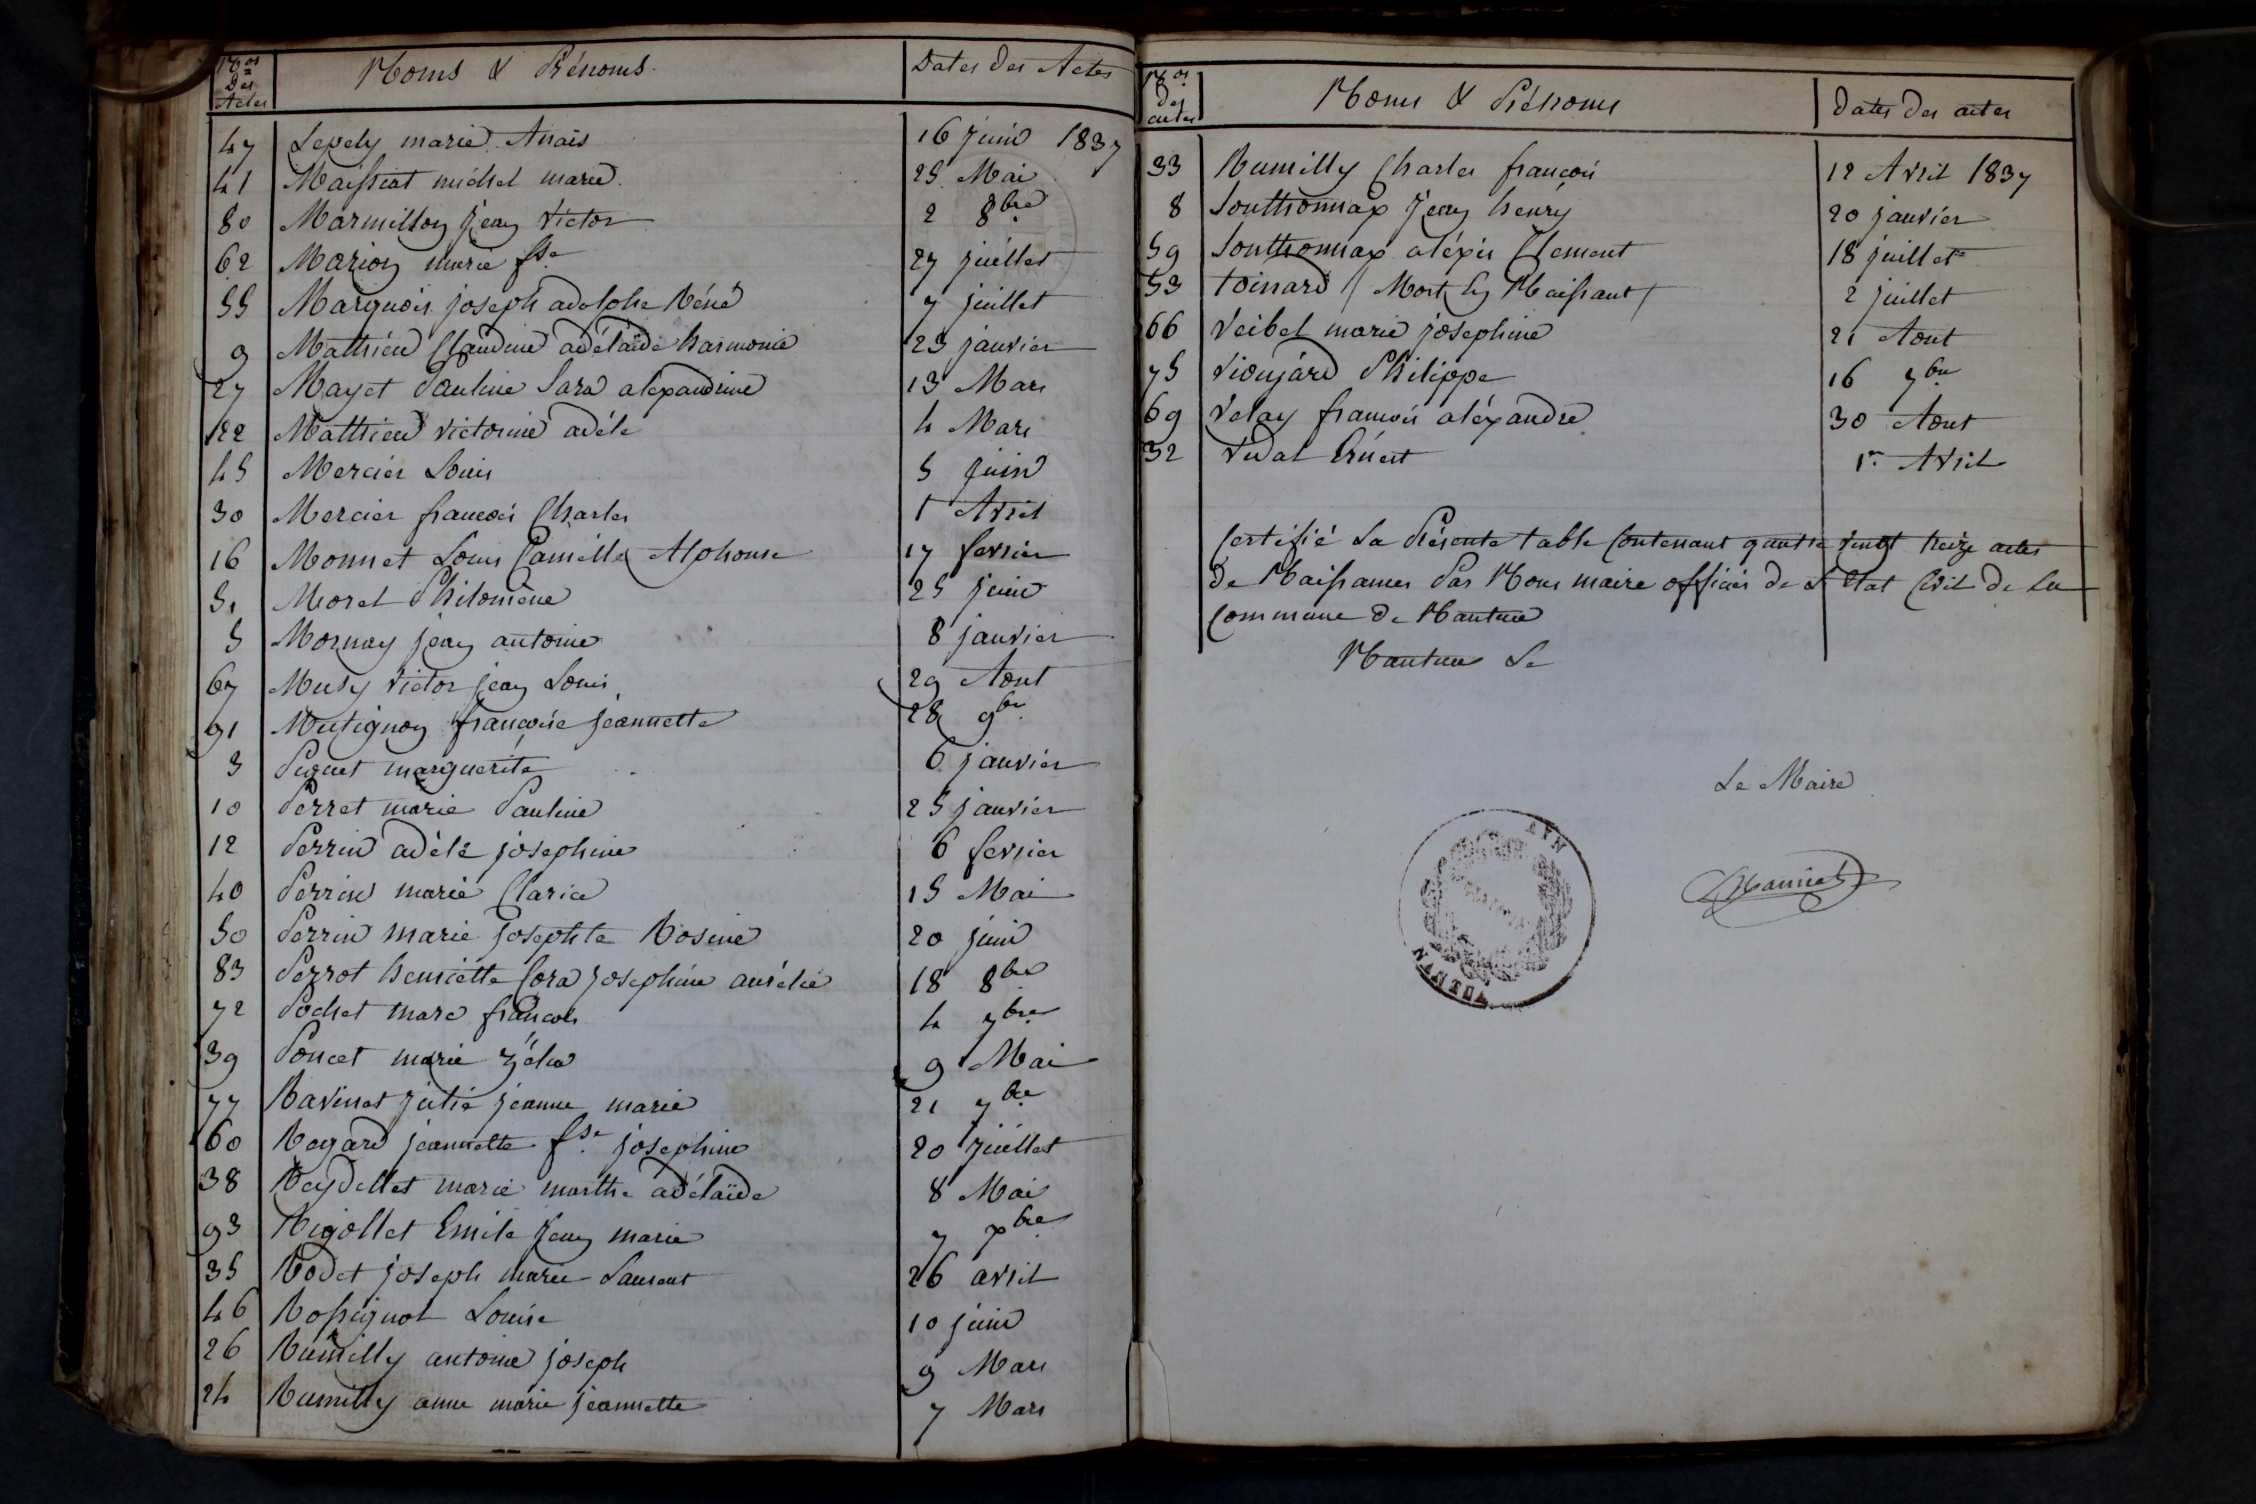 Nos des Actes Noms & Prénoms. Dates des Actes
47 Levely marie Anaïs 16 juin 1837
41 Maissiat michel marie 25 Mai
80 Marmillon jean victor 2 8bre
62 Marion marie fse 27 juillet
55 Marquois joseph adolphe Réné 7 juillet
9 Mathieu Claudine adélaïde harmonie 23 janvier
27 Mayet Pauline Sara alexandrine 13 Mars
22 Matthieu victorine adéle 4 Mars
45 Mercier Louis 5 juin
30 Mercier francois Charles 1 Avril
16 Monnet Louis Camille Alphonse 17 fevrier
51 Morel Philomène 25 juin
5 Mornay jean antoine 8 janvier
67 Musy victor jean Louis 29 Aout
91 Mutignon francoise jeannette 28 9bre
3 Puguet marguerite 6 janvier
10 Perret marie Pauline 25 janvier
12 Perrin adéle josephine 6 fevrier
40 Perrin marie Clarice 15 Mai
50 Perrin marie josephte Rosine 20 juin
83 Perrot henriette Cora josephine aurélie 18 8bre
72 Pochet marc francois 4 7bre
39 Poncet marie Zélie 9 Mai
77 Ravinet julie jeanne marie 21 7bre
60 Regard jeannette fse josephine 20 juillet
38 Reydellet marie marthe adélaïde 8 Mai
93 Rigollet Emile jean marie 7 xbre
35 Rodet joseph marie Laurent 26 avril
46 Rossignol Louise 10 juin
26 Rumilly antoine joseph 9 Mars
24 Rumilly anne marie jeannette 7 Mars
Nos des actes Noms & Prénoms Dates des actes
33 Rumilly Charles francois 12 Avril 1837
8 Southonnax jean henry 20 janvier
59 Southonnax aléxis Clement 18 juillet
53 toinard (Mort Ny Naissant) 2 juillet
66 veibel marie josephine 21 Aout
75 vioujard Philippe 16 7bre
69 velay francois aléxandre 30 Aout
32 vidal Ernest 1er Avril
Certifié La Présente table Contenant quatre vingt treize actes
de Naissances Par Nous maire officier de L'Etat Civil de La
Commune de Nantua
Nantua Le
Le Maire
AIN
NANTUA